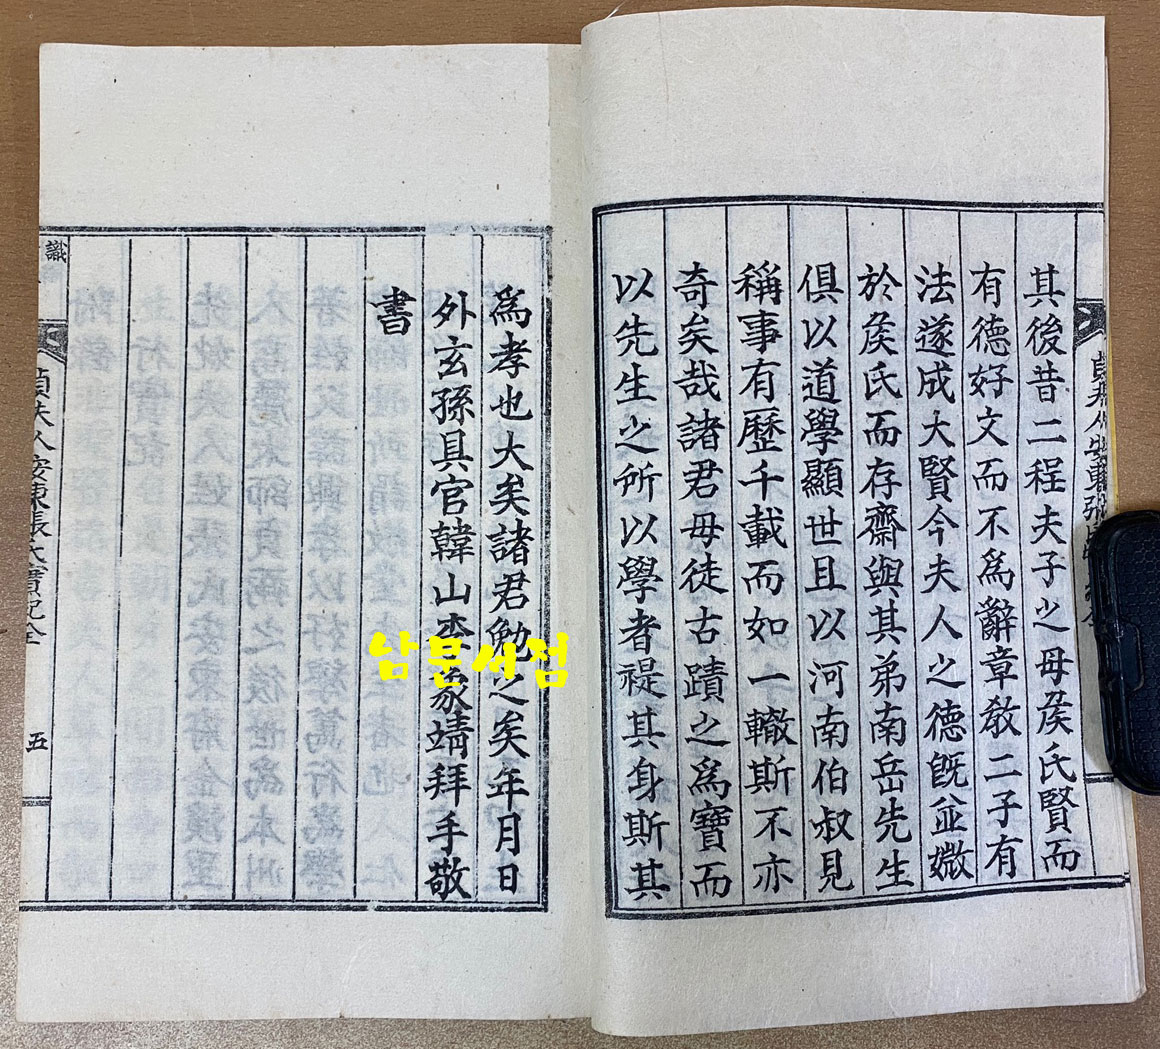 其後昔二程夫子之母矦氏賢而
有德好文而不爲辭章敎二子有
法遂成大賢今夫人之德旣並媺
於矦氏而存齋與其弟南岳先生
俱以道學顯世且以河南伯叔見
稱事有歷千載而如一轍斯不亦
奇矣哉諸君毋徒古蹟之爲寶而
以先生之所以學者禔其身斯其
爲孝也大矣諸君勉之矣年月日
外玄孫具官韓山李象靖拜手敬
書
識
貞夫人安東張氏實紀全
五
남문서점